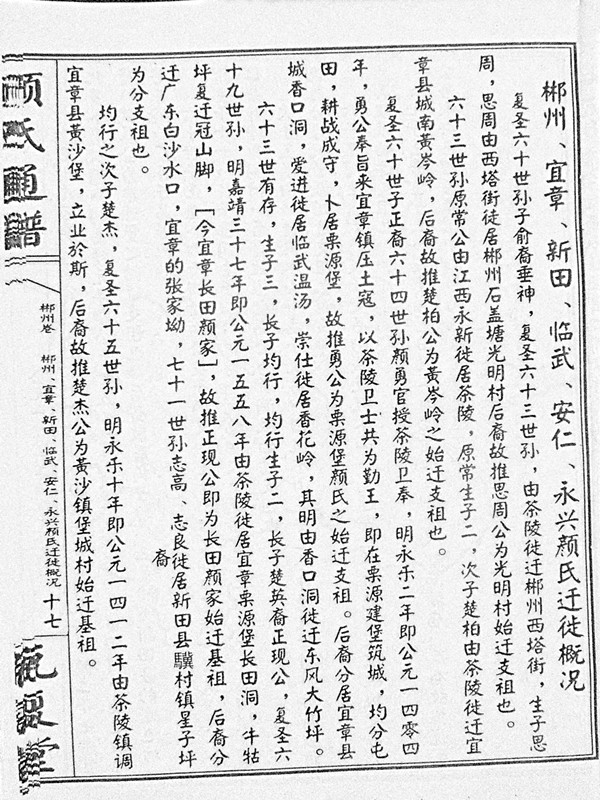 郴州、宜章、新田、临武、安仁、永兴颜氏迁徙概况
复圣六十世孙子俞裔垂神，复圣六十三世孙，由茶陵徙迁郴州西塔街，生子思
周，思周由西塔街徙居郴州石盖塘光明村后裔故推思周公为光明村始迁支祖也。
六十三世孙原常公由江西永新徙居茶陵，原常生子二，次子楚柏由茶陵徙迁宜
章县城南黄岑岭，后裔故推楚柏公为黄岑岭之始迁支祖也。
复圣六十世子正裔六十四世孙颜勇官授茶陵卫奉，明永乐二年即公元一四零四
年，勇公奉旨来宜章镇压土寇，以茶陵卫士共为勤王，即在栗源建堡筑城，均分屯
田，耕战成守，卜居栗源堡，故推勇公为栗源堡颜氏之始迁支祖。后裔分居宜章县
城香口洞，爱进徙居临武温汤，崇仕徙居香花岭，其明由香口洞徙迁东风大竹坪。
六十三世有存，生子三，长子均行，均行生子二，长子楚英裔正现公，复圣六
十九世孙，明嘉靖三十七年即公元一五五八年由茶陵徙居宜章栗源堡长田洞，牛牯
坪复迁冠山脚，［今宜章长田颜家］，故推正现公即为长田颜家始迁基祖，后裔分
迁广东白沙水口，宜章的张家坳，七十一世孙志高、志良徙居新田县驥村镇星子坪
裔
为分支祖也。
均行之次子楚杰，复圣六十五世孙，明永乐十年即公元一四一二年由茶陵镇调
宜章县黄沙堡，立业於斯，后裔故推楚杰公为黄沙镇堡城村始迁基祖。
颜氏通谱
郴州卷
郴州、宜章、新田、临武、安仁、永兴颜氏迁徙概况
十七